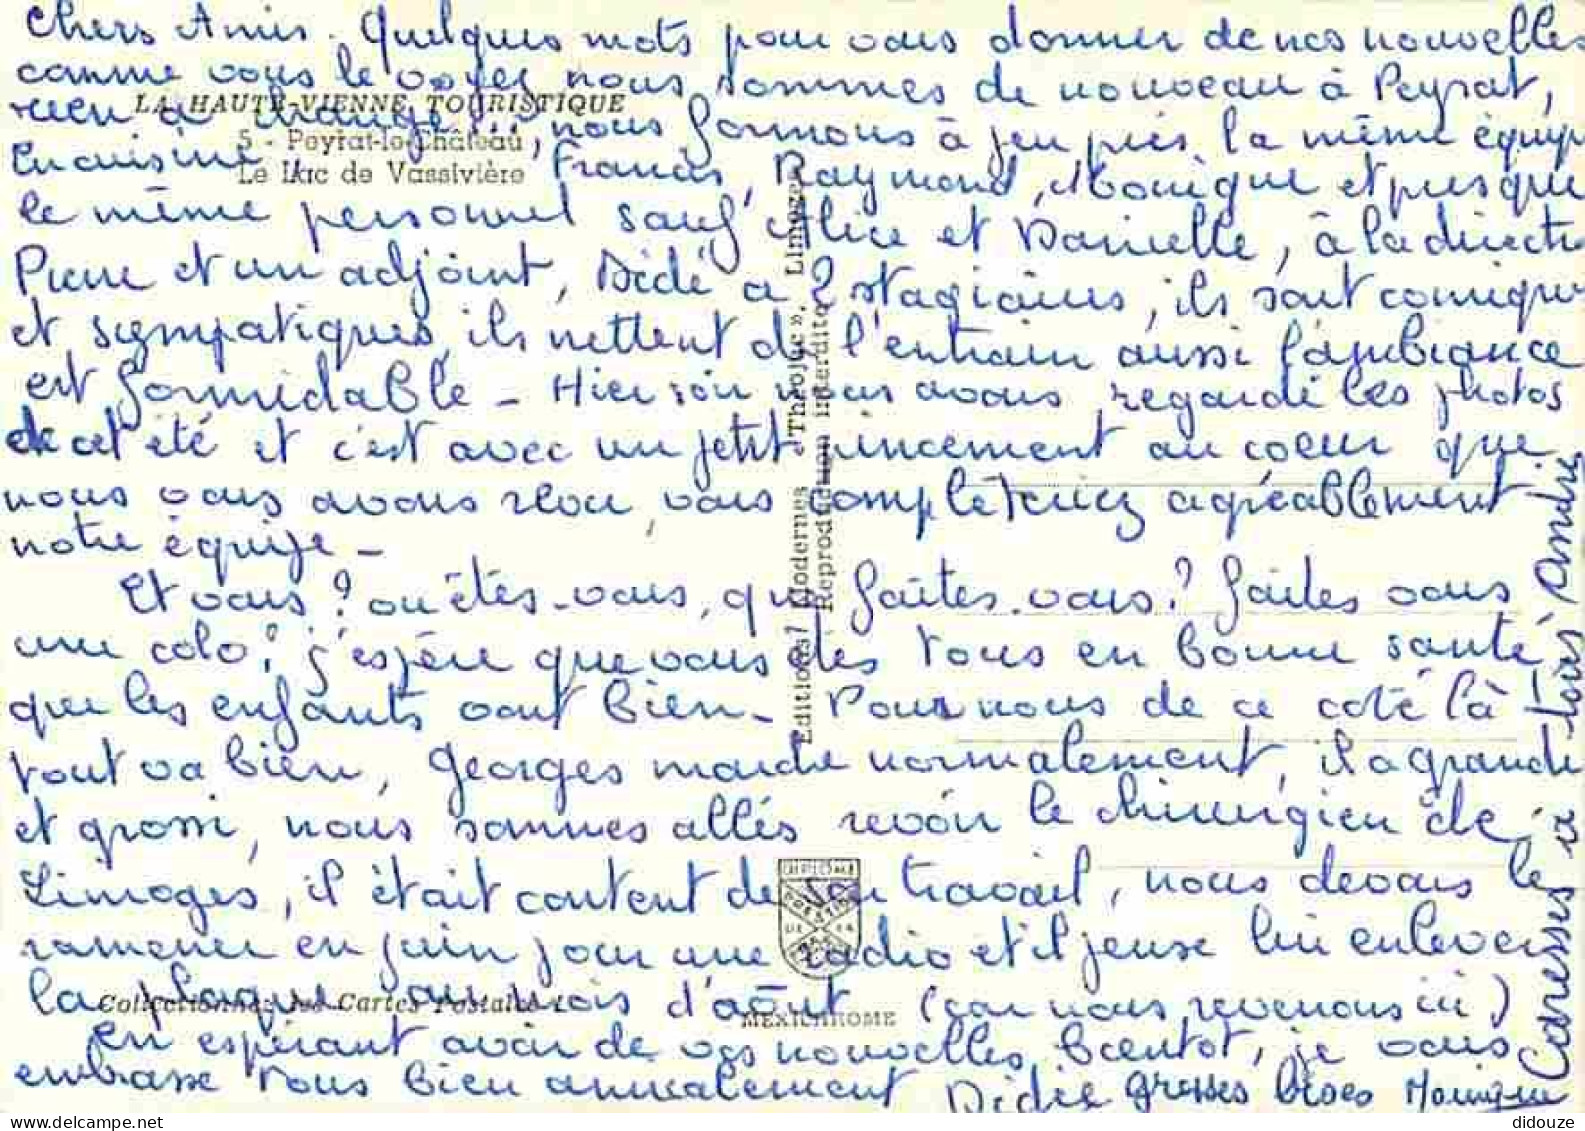 Chers Amis. Quelques mots pour vous donner de nos nouvelles
comme vous le voyez nous sommes de nouveau à Peyrat,
LA HAUTE-VIENNE TOURISTIQUE
rien a changé..., nous formons à peu près la même équip
5 - Peyrat-le-Château
En cuisine Francis, Raymond, Monique et presque
Le Lac de Vassivière
le même personnel sauf Alice et Danielle, à la directi
Pierre et un adjoint, Dédé a 2 stagiaires, ils sont comiques
et sympatiques, ils mettent de l'entrain aussi l'ambiance
est formidable - Hier soir nous avons regardé les photos
de cet été et c'est avec un petit pincement au coeur que
nous vous avons revu, vous complèteriez agréablement
notre équipe -
Et vous? où êtes-vous, que faites-vous? faites vous
une colo? j'espère que vous êtes tous en bonne santé,
que les enfants vont bien - Pour nous de ce coté là
tout va bien, Georges marche normalement, il a grandi
et grossi, nous sommes allés revoir le chirurgien de
Limoges, il était content de son travail, nous devons le
ramener en juin pour une radio et il pense lui enlever
la plaque au mois d'août (car nous revenons ici)
Collectionnez les Cartes Postales
MEXICHROME
En espérant avoir de vos nouvelles bientot, je vous
embrasse tous bien amicalement Didie grosses bises Monique
Caresses à tous André
Editions Modernes « Théojac », Limoges
Reproduction interdite
didouze